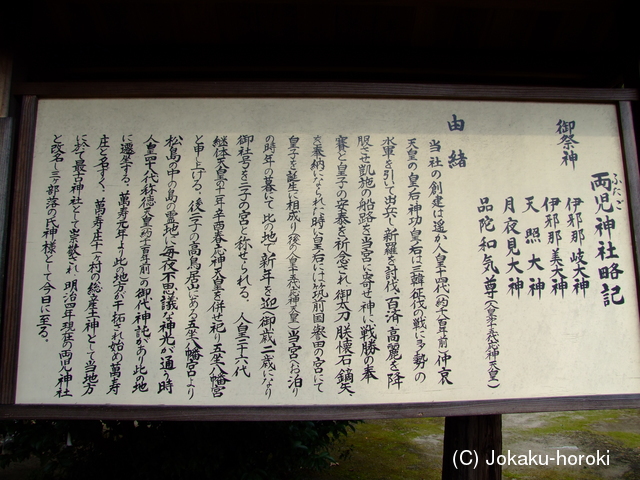 両児神社略記
ふたご
御祭神
伊邪那岐大神
伊邪那美大神
天照大神
月夜見大神
品陀和気尊(人皇第十五代応神天皇)
由緒
当社の創建は遥か人皇十四代(約千八百年前)仲哀
天皇の皇后神功皇后は三韓征伐の戦に多勢の
水軍を引いて出兵し新羅を討伐、百済、高麗を降
服させ凱施の船路を当宮に寄せ神に戦勝の奉
賽と皇子の安泰を祈念され御太刀、朕懐石、鏑矢
を奉納になられた時に皇后には筑前国誉田の宮にて
皇子を誕生に相成り(後の人皇十五代応神天皇)当宮へお泊り
の時年の暮いて此の地で新年を迎へ(御歳二歳)になり
御社号を二子の宮と称せられる、人皇二十六代
継体天皇の十一年辛酉春応神天皇を併せ祀り五坐八幡宮
と申し上げる、後二子の高鳥居にある五坐八幡宮より
松島の中の島の霊地に毎夜不思議な神光が通う時
人皇四十八代称徳天皇(約千百年前)の御代神託があり此の地
に遷坐する、萬寿元年より此の地方が干拓され始め萬寿
庄と名ずく、萬寿庄千一ヶ村の総産土神として当地方
に於て最古神社として崇敬され、明治四年現在の両児神社
と改名し三ヶ部落の氏神様として今日に至る。
(C) Jokaku-horoki